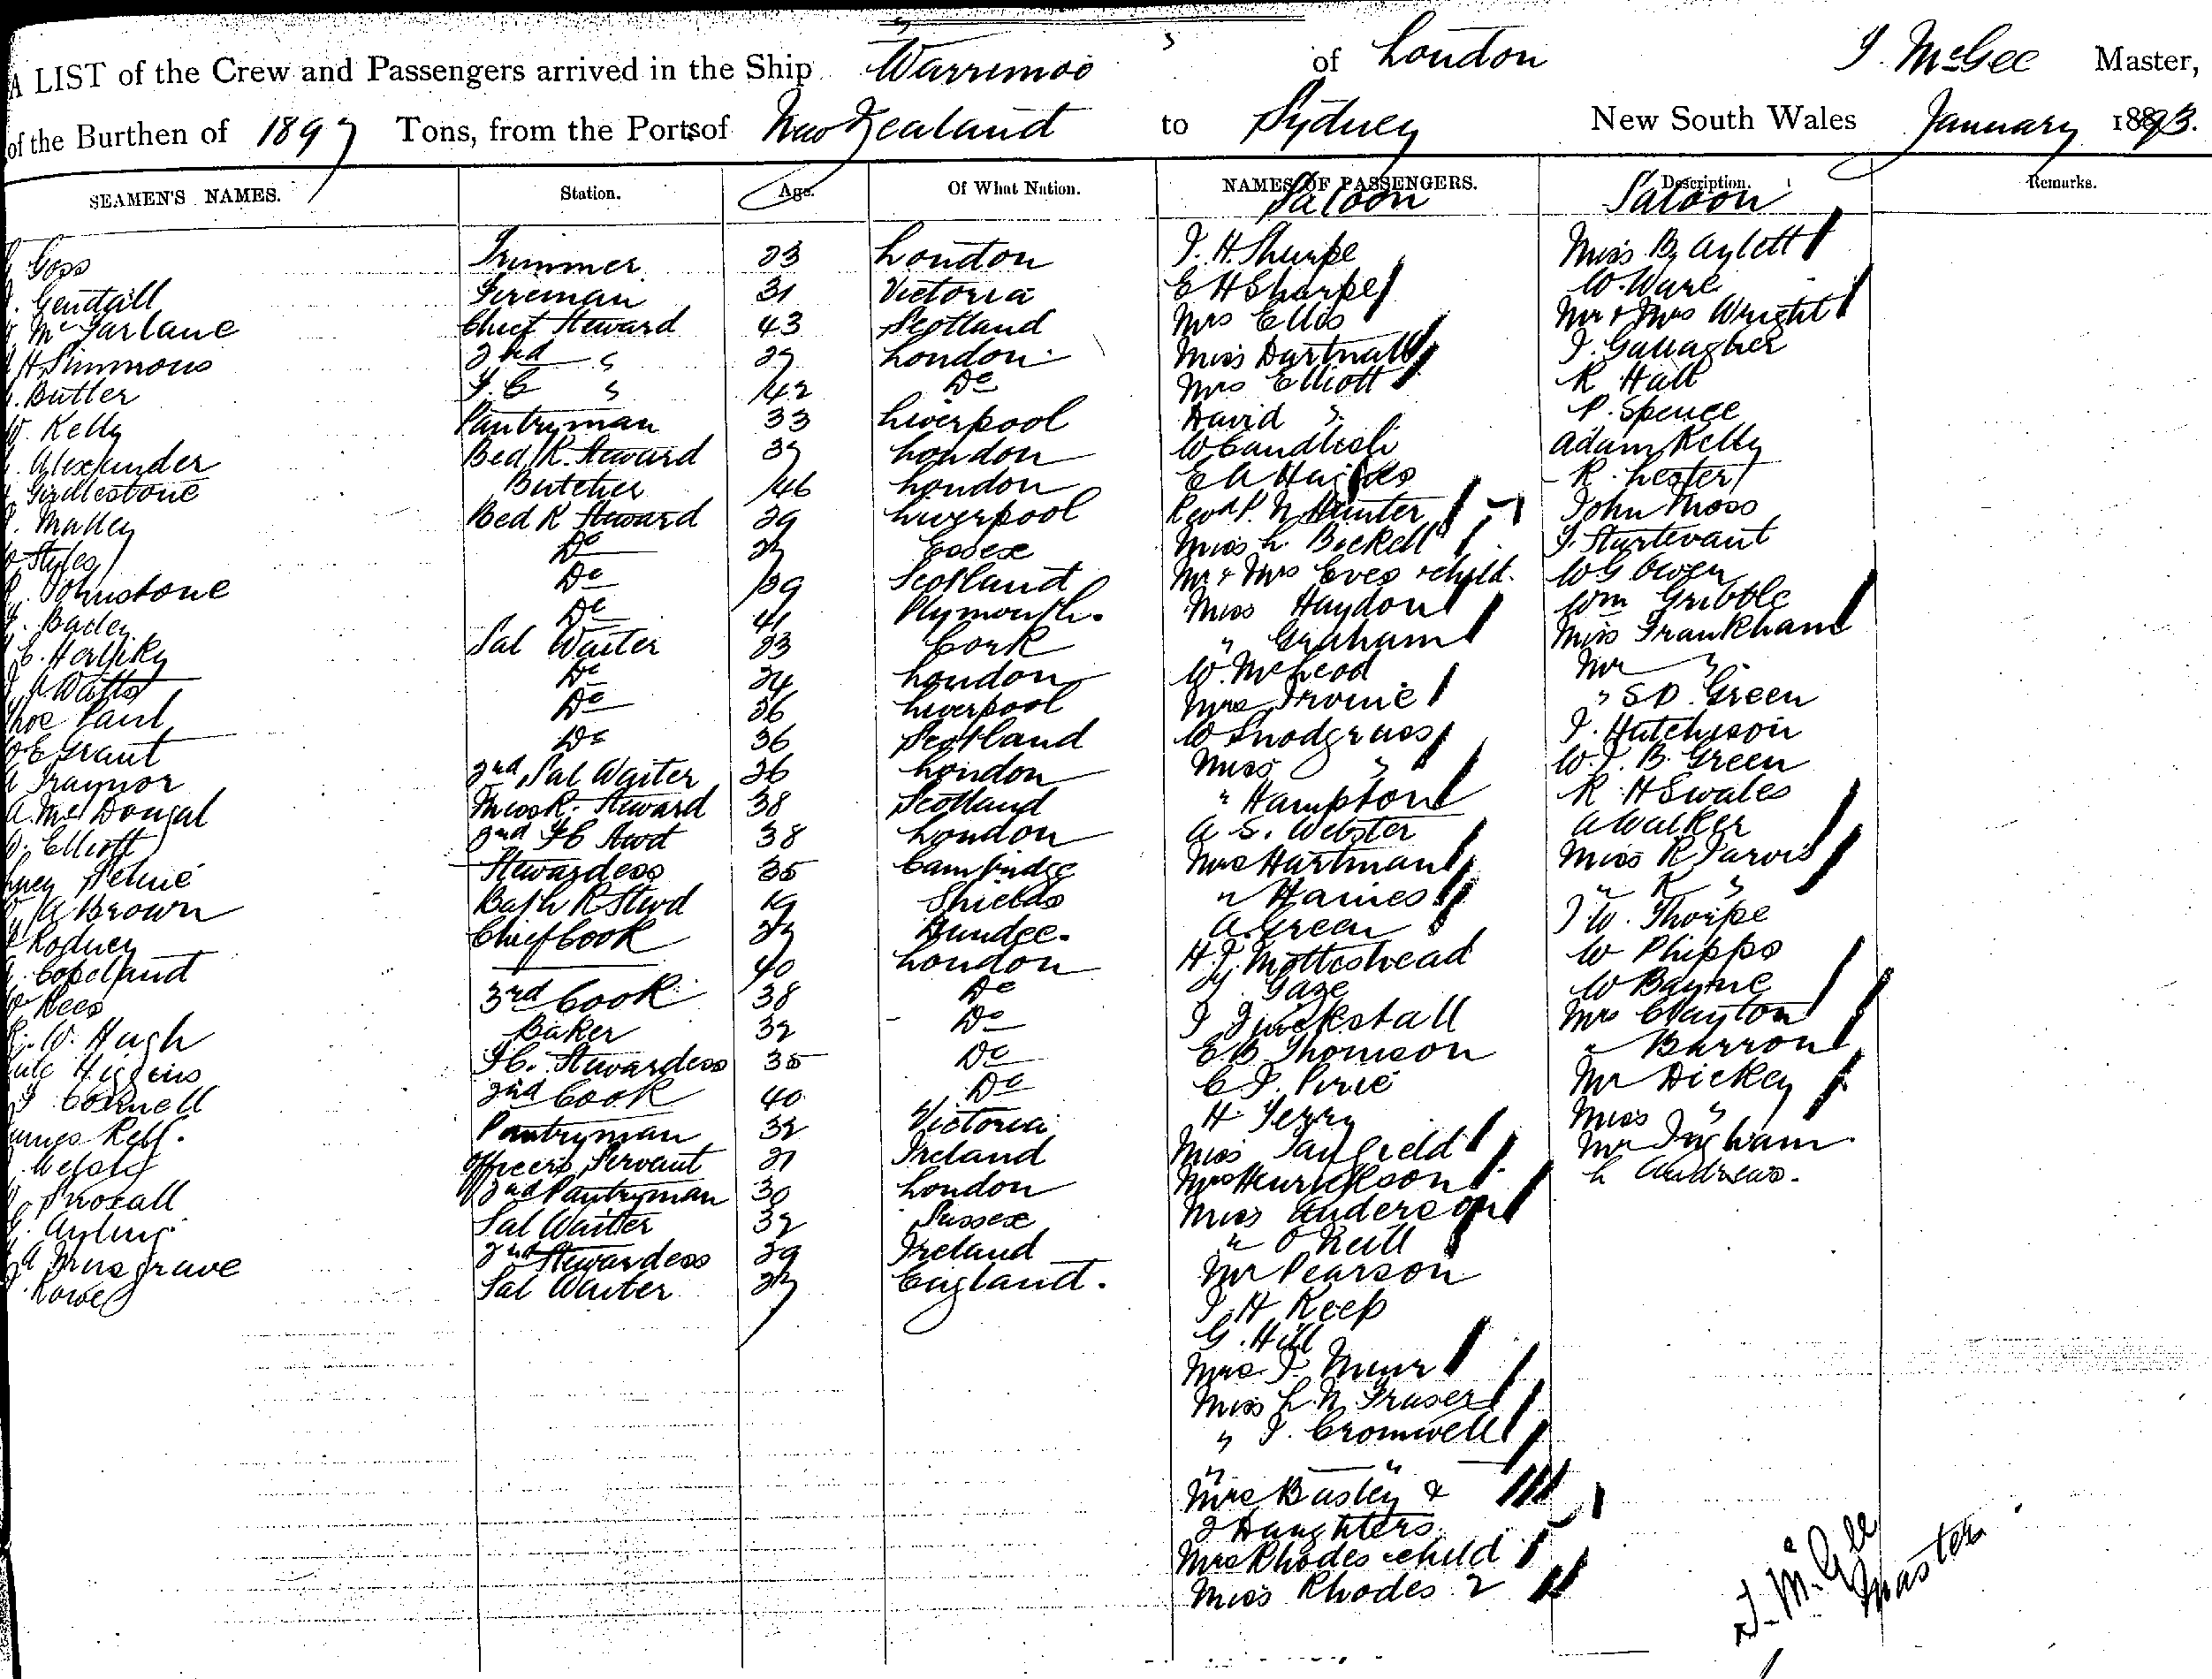 A LIST of the Crew and Passengers arrived in the Ship Warrimoo of London J. McGee Master,
of the Burthen of 1897 Tons, from the Ports of New Zealand to Sydney New South Wales January 1893.
SEAMEN'S NAMES. Station. Age. Of What Nation. NAMES OF PASSENGERS. Description. Remarks.
Saloon Saloon
Goss Trimmer 23 London J. H. Sharpe Miss B. Aylett
Gendall Fireman 31 Victoria E H Sharpe W. Ware
McFarlane Chief Steward 43 Scotland Mrs Ellis Mr & Mrs Wright
H. Simmons 2nd " London Miss Dartnall J. Gallagher
Butler F. C " 42 Do Mrs Elliott R Hall
Kelly Pantryman 33 Liverpool David " P. Spence
Alexander Bed R. Steward London W Candlish Adam Kelly
Girdlestone Butcher 46 London E A R. Lester
Malley Bed R Steward 29 Liverpool Revd P. N. Hunter John Moss
Styles Do Essex Miss L. Beckett J. Sturtevant
Johnstone Do 29 Scotland Mr & Mrs Eves & child. W G Owen
Do 41 Plymouth. Miss Haydon Wm Gribble
Sal Waiter 23 Cork " Graham Miss Frankham
Watts Do 24 London W. McLeod Mr "
Paul Do 26 Liverpool Mrs Irvine " S D. Green
E Grant Do 36 Scotland W Snodgrass J. Hutchison
Traynor 2nd Sal Waiter 26 London Miss " W. J. B. Green
A. McDougal Mess R. Steward 38 Scotland " Hampton R. H Swales
Elliott 2nd F C Stwd 38 London A. S. Webster A Walker
Petrie Stewardess 35 Cambridge Mrs Hartman Miss R Jarvis
A Brown Bath R Stwd 19 Shields " Haines " R "
Rodney Chief Cook Dundee. A. Green J W. Thorpe
Copeland 40 London H. J. Mottishead W Phipps
Rees 3rd Cook 38 Do Gaze W Bayne
W. Hugh Baker 32 Do J Tunkstall Mrs Clayton
Higgins F C. Stewardess 35 Do E B Thomson " Barron
Cornell 2nd Cook 40 Do C J. Pirie Mr Dickey
James Relf. Pantryman 32 Victoria H. Terry Miss "
Officers Servant 21 Ireland Miss Mr Ingham
2nd Pantryman 30 London Mrs Henrickson L Andrews.
Ayling Sal Waiter 32 Sussex Miss Anderson
Musgrave 2nd Stewardess 29 Ireland " O'Neill
Rowe Sal Waiter England. Mr Pearson
J. H Keep
G. Hill
Mrs J. Muir
Miss L. N. Fraser
" J. Cromwell
" "
Mrs Basley &
2 Daughters
Mrs Rhodes & child
Miss Rhodes 2
J. McGee
Master